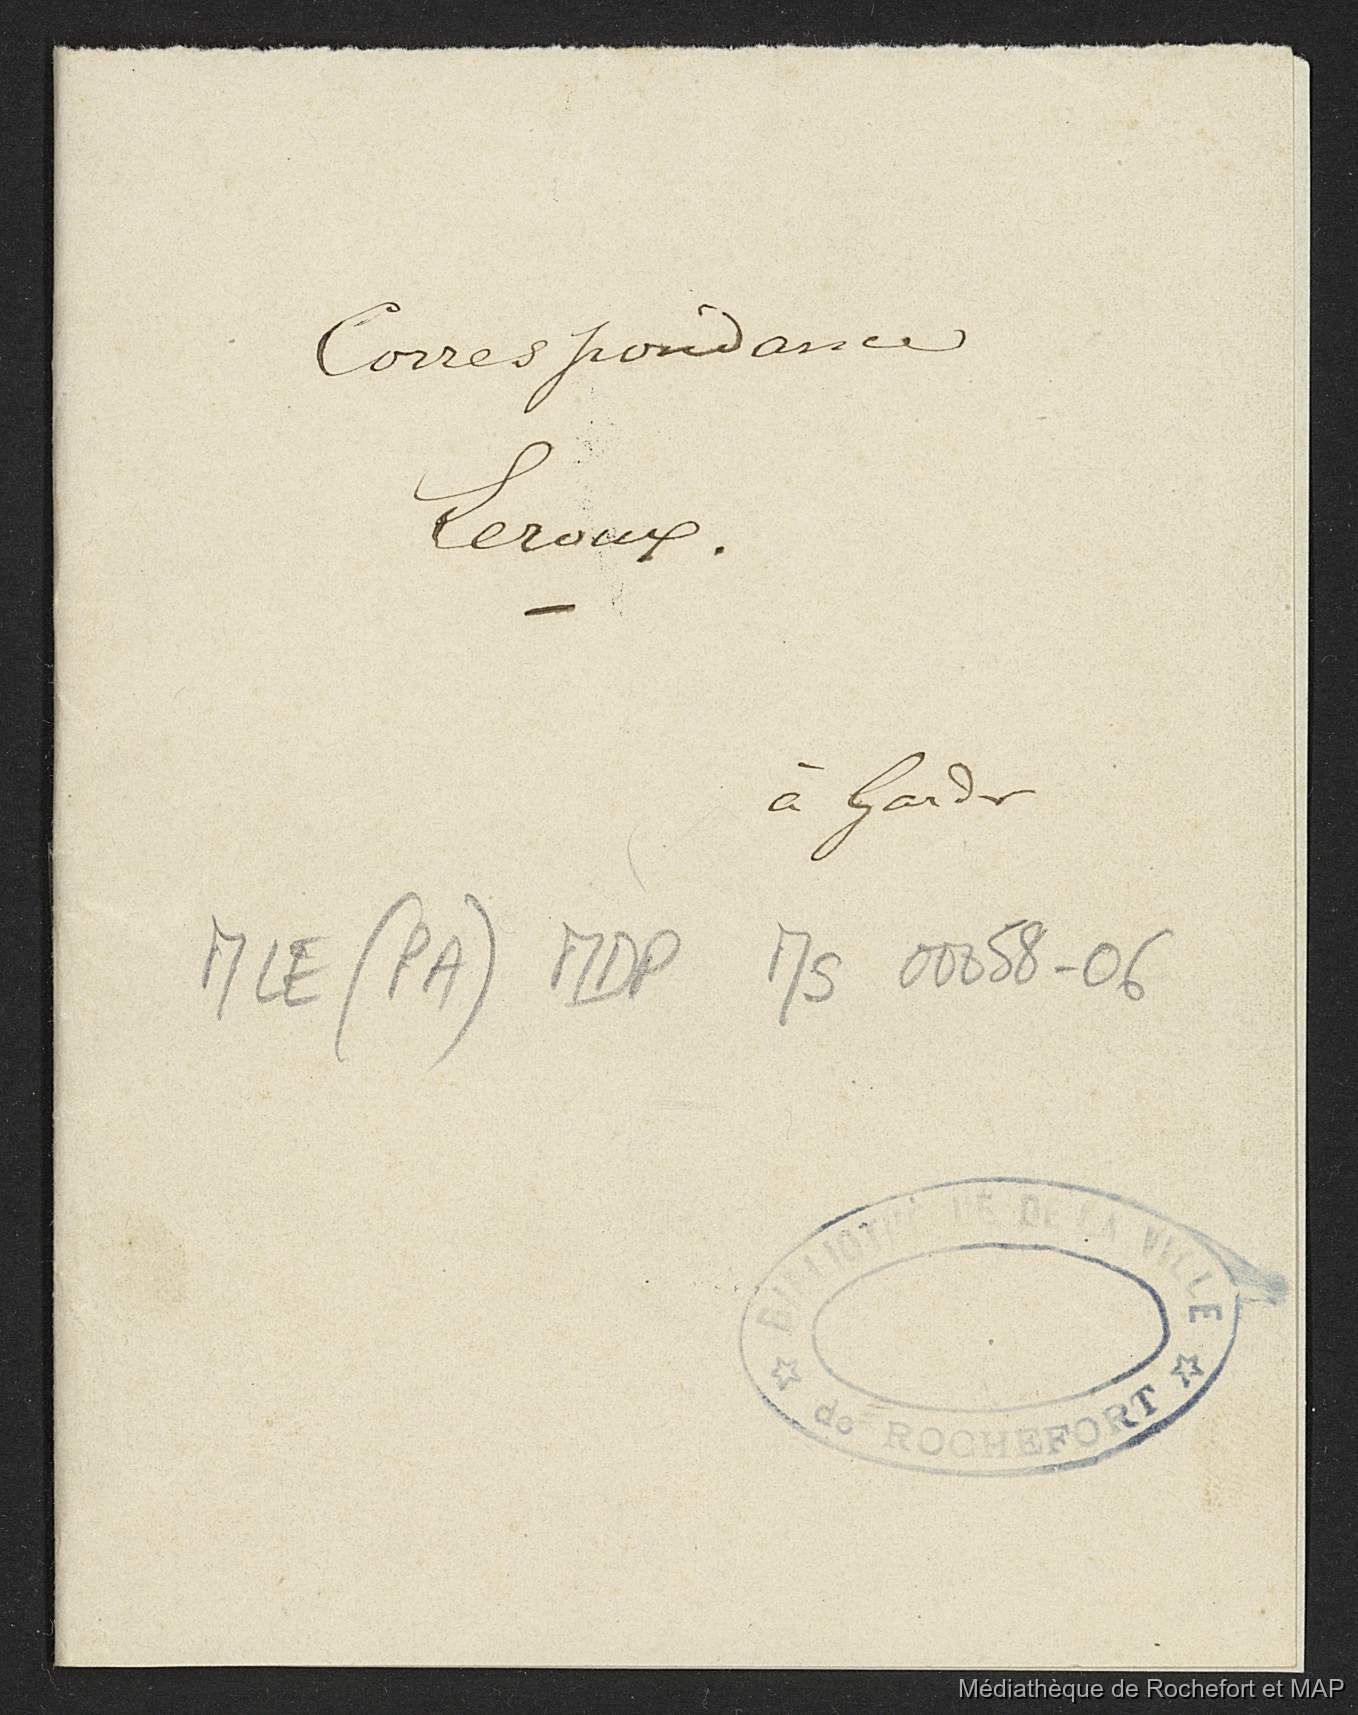 Correspondance
Leroux.
à Garder
MLE (PA) MDP MS 00058-06
BIBLIOTHÈQUE DE LA VILLE
de ROCHEFORT
Médiathèque de Rochefort et MAP